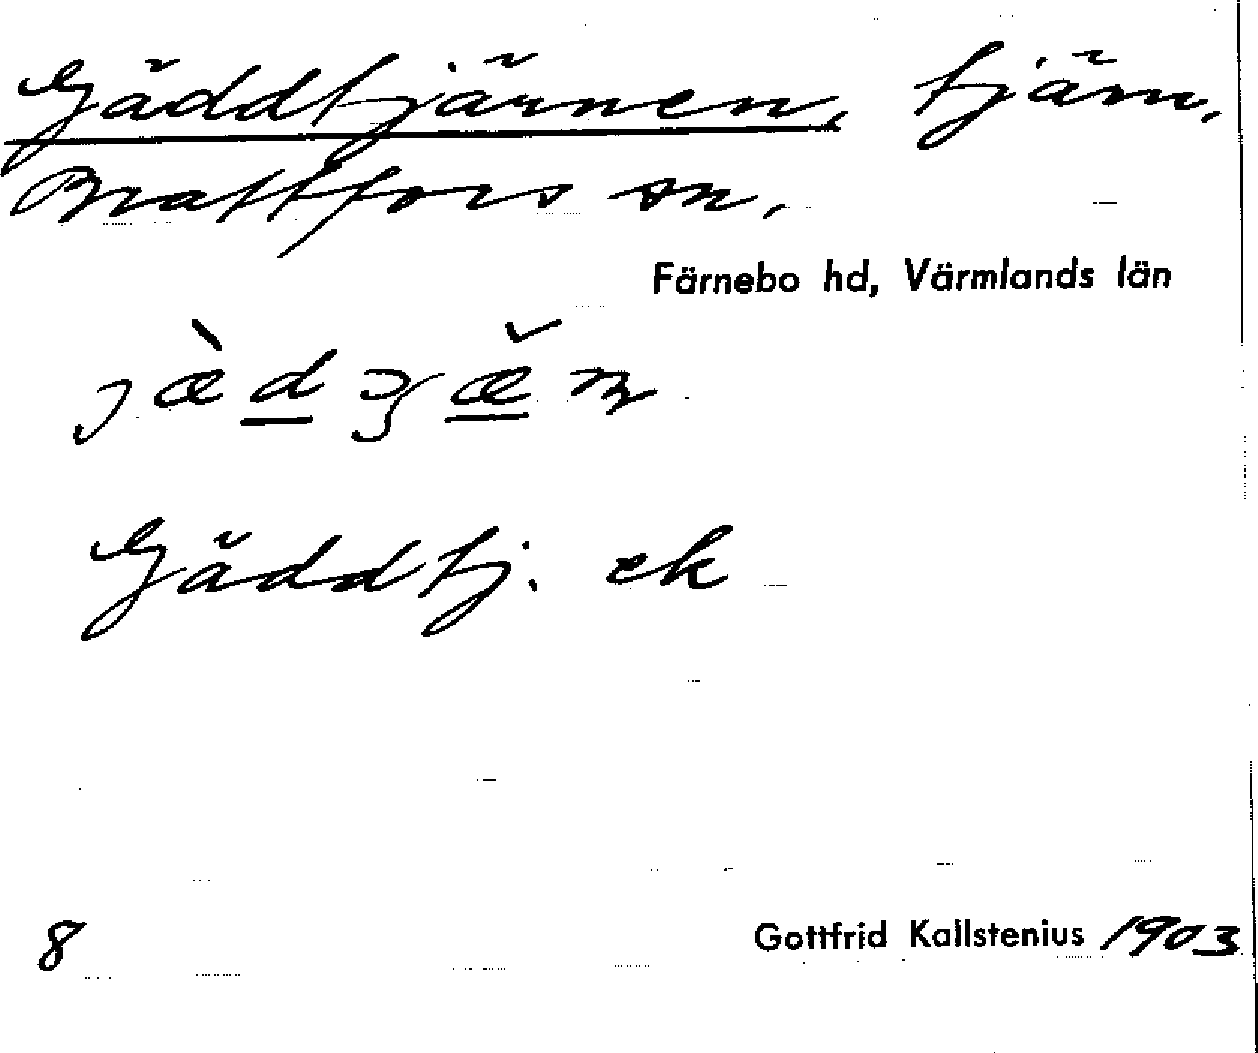 Gäddtjärnen, tjärn,
Brattfors sn,
Färnebo hd, Värmlands län
Gäddtj. ek
8
Gottfrid Kallstenius 1903